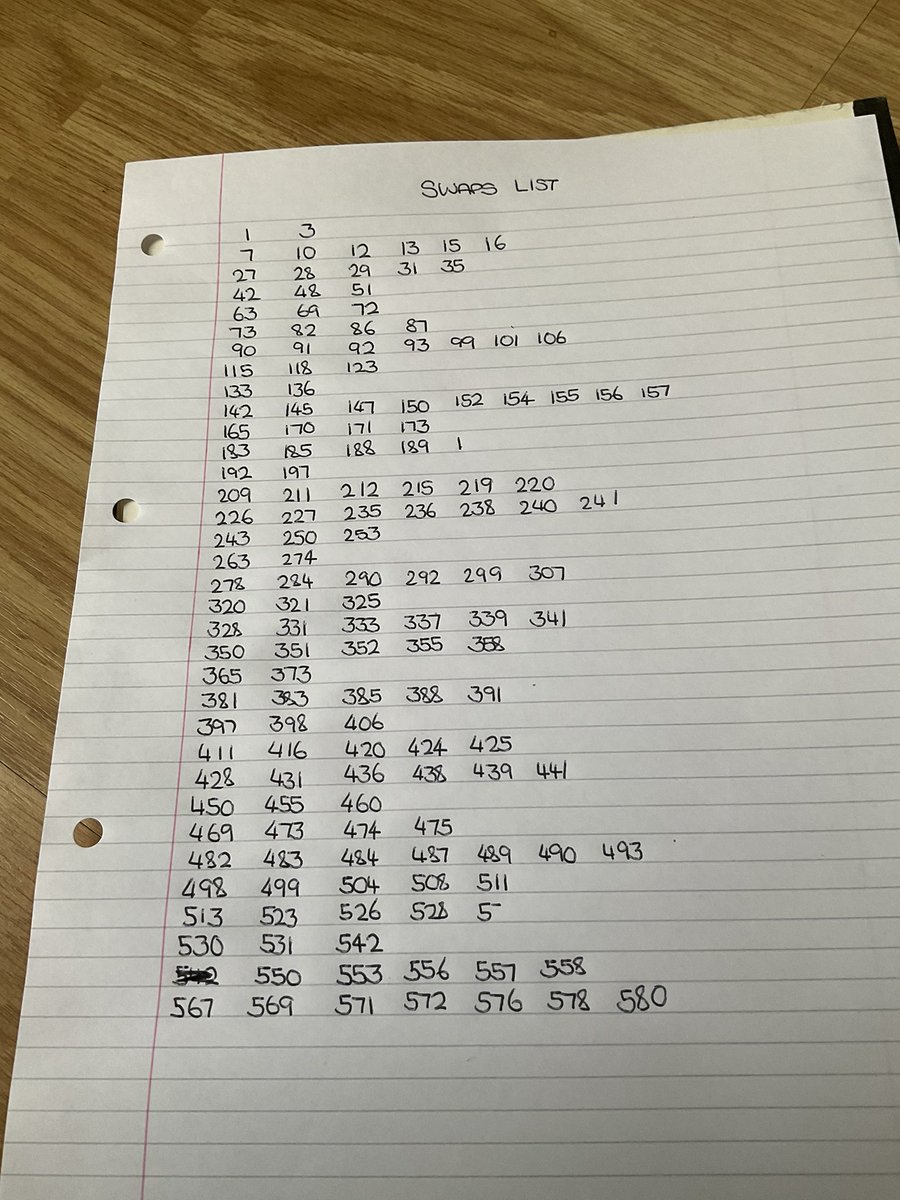 SWAPS LIST
1 3
7 10 12 13 15 16
27 28 29 31 35
42 48 51
63 69 72
73 82 86 87
90 91 92 93 99 101 106
115 118 123
133 136
142 145 147 150 152 154 155 156 157
165 170 171 173
183 185 188 189 1
192 197
209 211 212 215 219 220
226 227 235 236 238 240 241
243 250 253
263 274
278 284 290 292 299 307
320 321 325
328 331 333 337 339 341
350 351 352 355 358
365 373
381 383 385 388 391
397 398 406
411 416 420 424 425
428 431 436 438 439 441
450 455 460
469 473 474 475
482 483 484 487 489 490 493
498 499 504 508 511
513 523 526 528 5
530 531 542
550 553 556 557 558
567 569 571 572 576 578 580